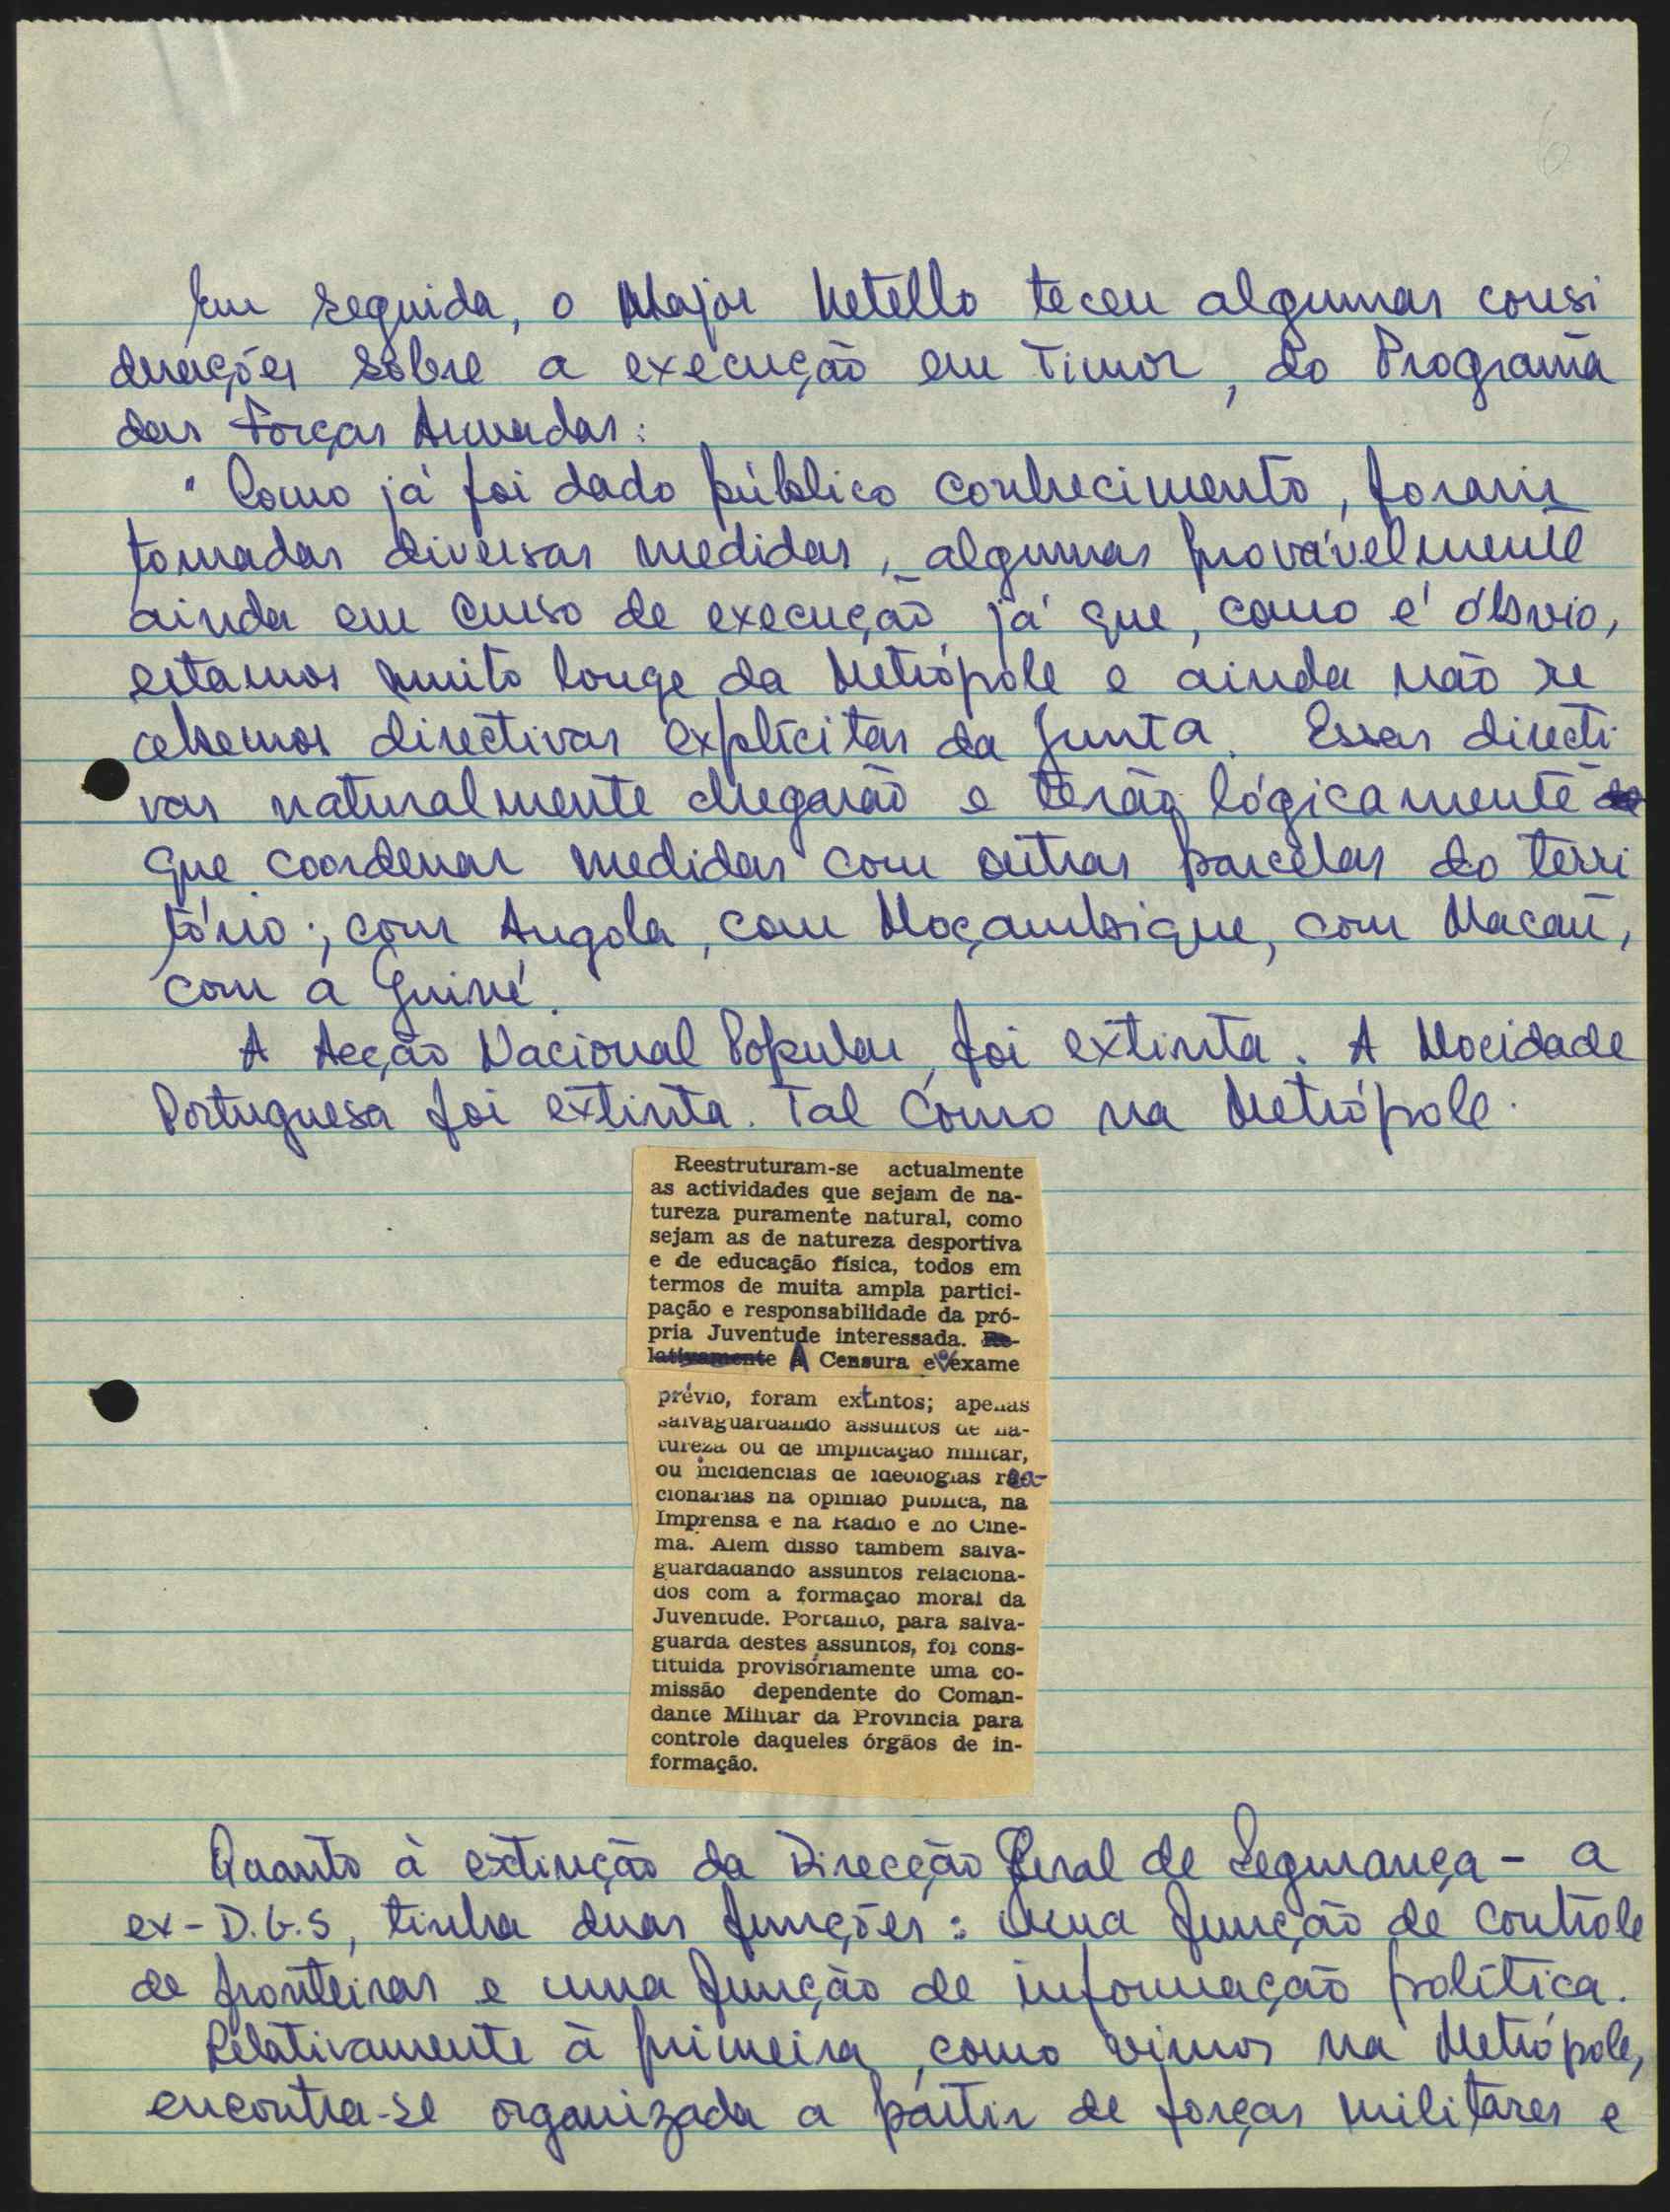 6
Em seguida, o Major Metello teceu algumas consi
derações sôbre a execução em Timor, do Programa
das Forças Armadas:
" Como já foi dado público conhecimento, foram
tomadas diversas medidas, algumas provávelmente
ainda em curso de execução já que, como é óbvio,
estamos muito longe da Metrópole e ainda não re
cebemos directivas explícitas da Junta. Essas directi
vas naturalmente chegarão e terão lógicamente
que coordenar medidas com outras parcelas do terri
tório; com Angola, com Moçambique, com Macau,
com a Guiné.
A Acção Nacional Popular, foi extinta. A Mocidade
Portuguesa foi extinta. Tal como na Metrópole.
Reestruturam-se actualmente
as actividades que sejam de na-
tureza puramente natural, como
sejam as de natureza desportiva
e de educação física, todos em
termos de muita ampla partici-
pação e responsabilidade da pró-
pria Juventude interessada. Re-
lativamente A Censura e o exame
prévio, foram extintos; apenas
salvaguardando assuntos de na-
tureza ou de implicação militar,
ou incidencias de ideologias rea-
cionarias na opinião publica, na
Imprensa e na Radio e no Cine-
ma. Alem disso tambem salva-
guardadando assuntos relaciona-
dos com a formaçao moral da
Juventude. Portanto, para salva-
guarda destes assuntos, foi cons-
tituida provisóriamente uma co-
missão dependente do Coman-
dante Militar da Provincia para
controle daqueles órgãos de in-
formação.
Quanto à extinção da Direcção Geral de Segurança - a
ex-D.G.S, tinha duas funções: Uma função de contrôle
de fronteiras e uma função de informação política.
Relativamente à primeira, como vimos na Metrópole,
encontra-se organizada a partir de forças militares e